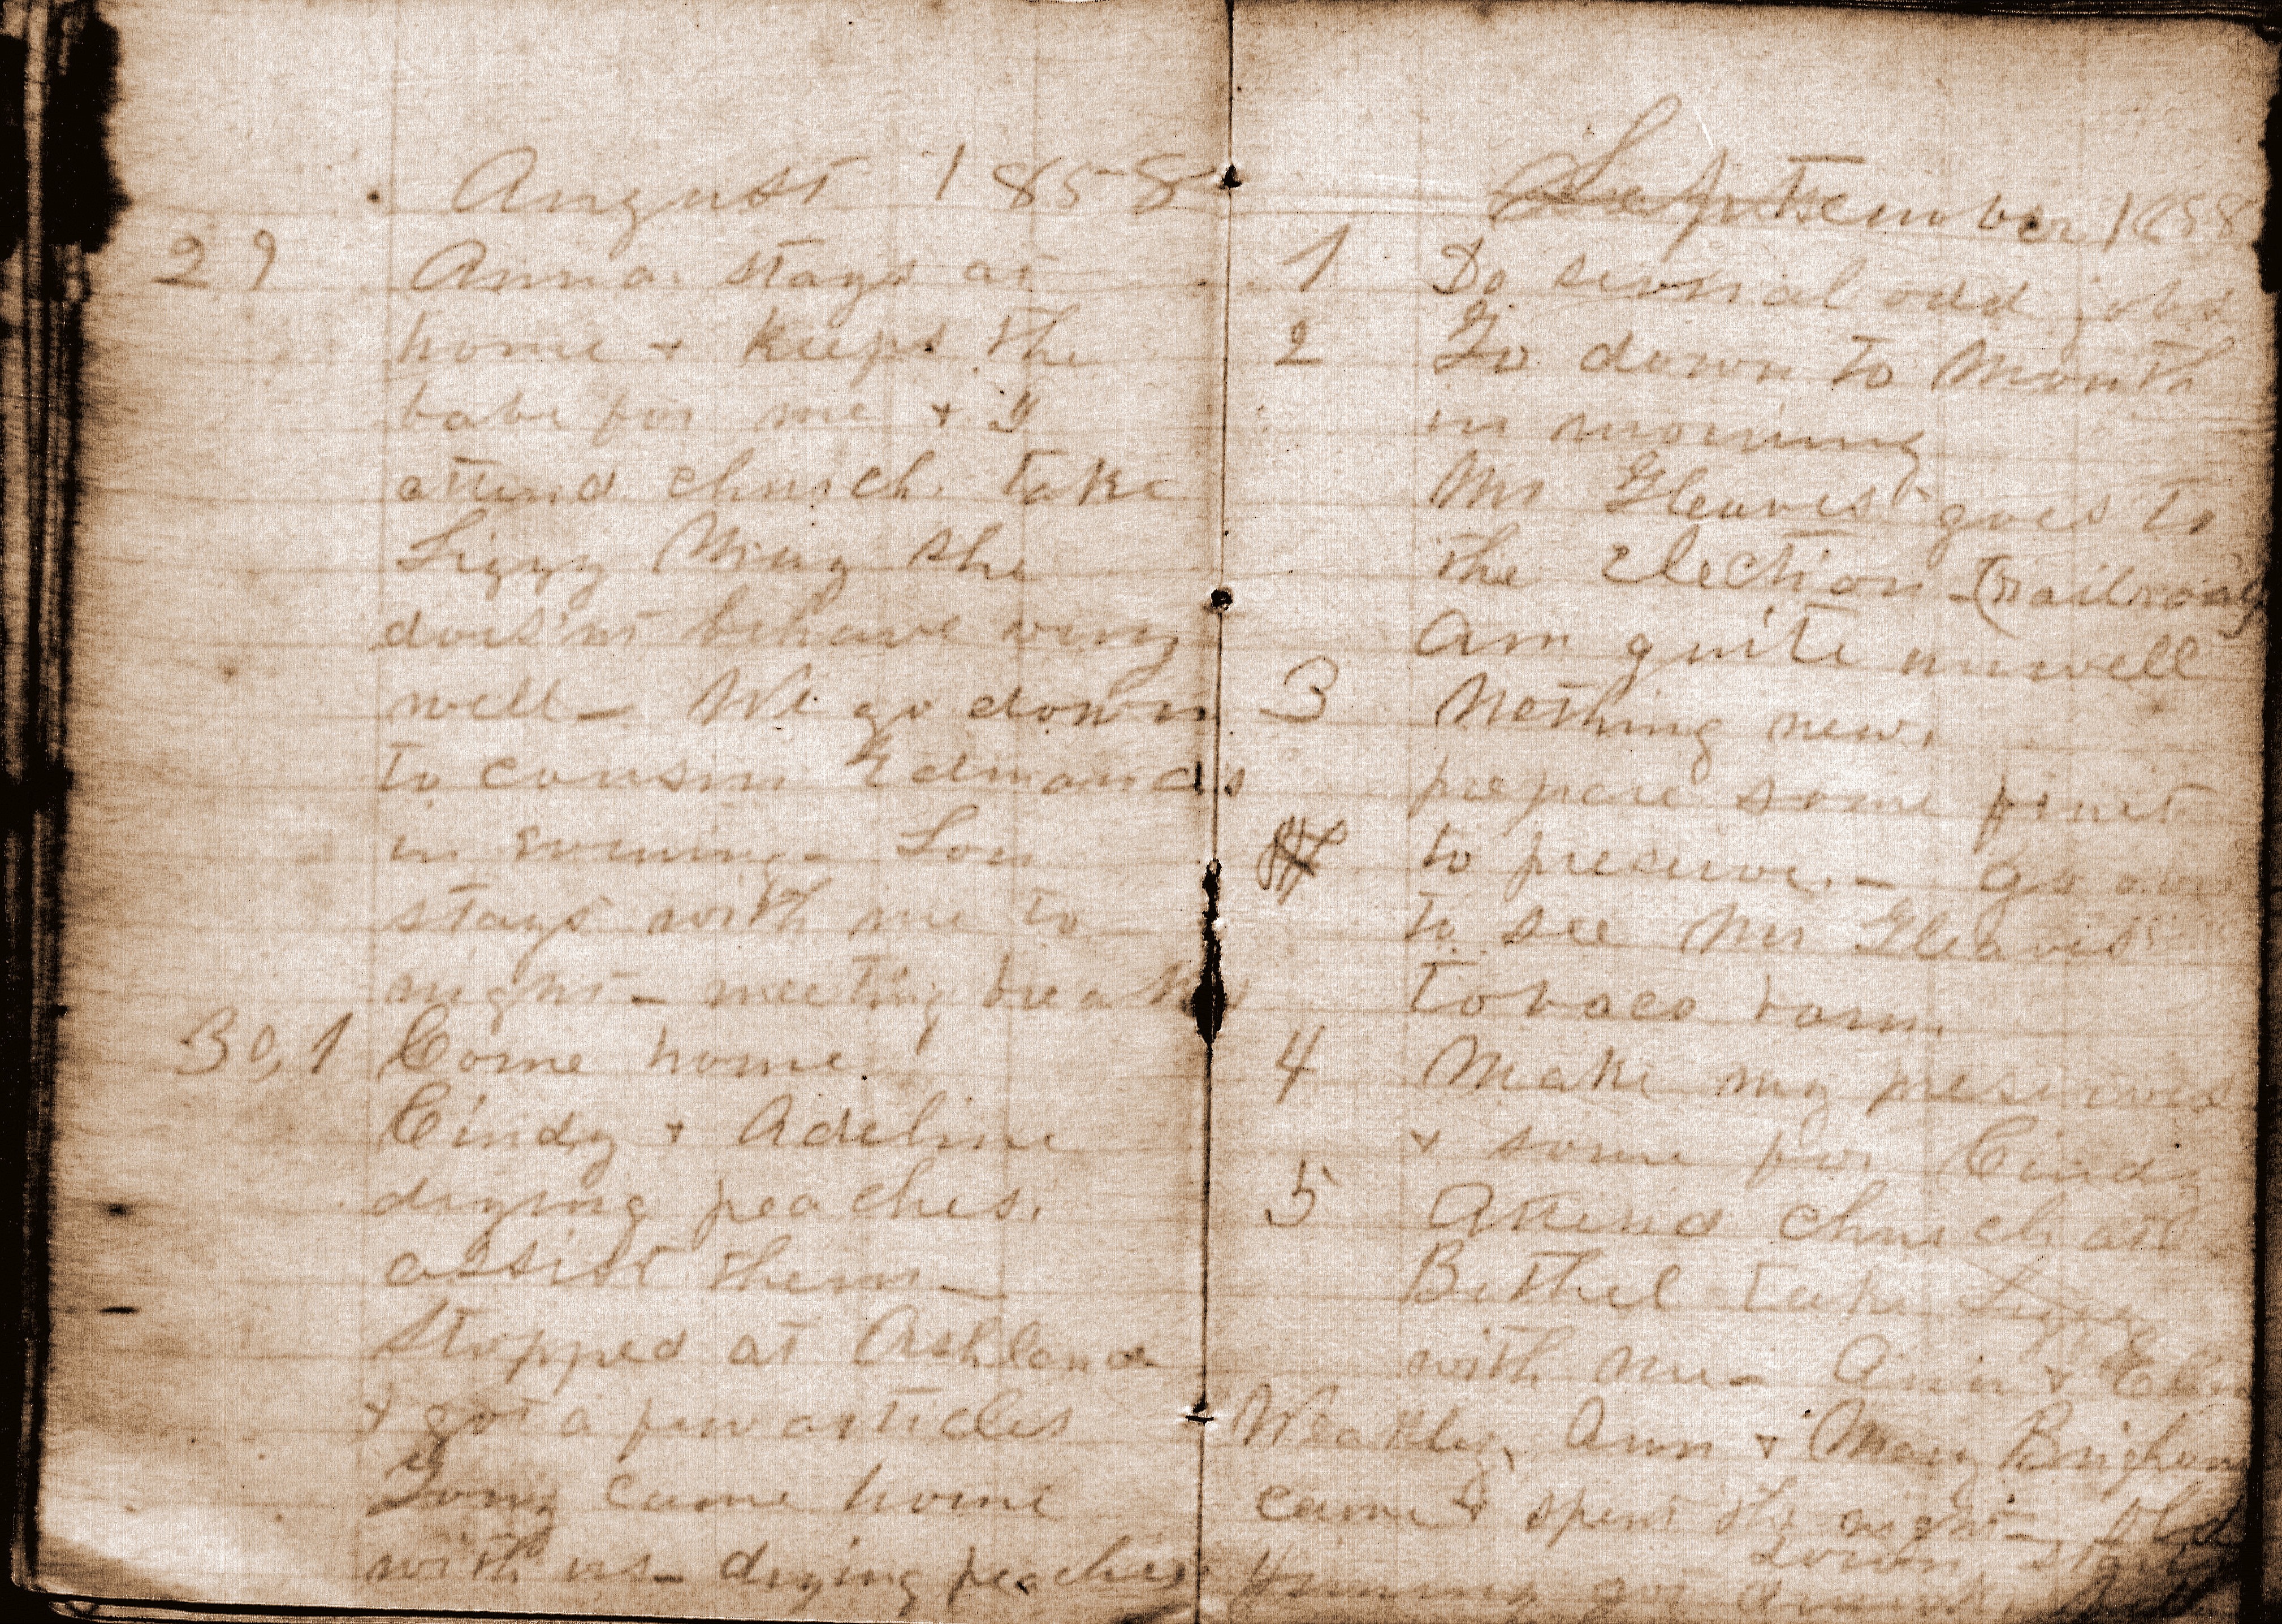 August 1858
29 Anna stays at
home + keeps the
babe for me + I
attend church take
Lizzy May she
does'nt behave very
well – We go down
to cousin Edmonds
in evening – Lou
stays with me to –
night – meeting breaks
30,1 Come home
Cindy + Adeline
drying peaches.
assist them –
Stopped at Ashland
+ got a few articles
Tony came home
with us – drying peaches
September 1858
1 Do several odd jobs
2 Go down to Mouth
in morning
Mr Gleaves goes to
the election – (railroad)
Am quite unwell
3 Nothing new,
prepare some fruit
to preserve. – Go over
to see Mr Gleaves'
tobaco barn.
4 Make my preserves
+ some for Cindy
5 Attend church at
Bethel take Lizzy
with me – Ann + Ellen
Weakley, Ann + Mary Brigham
came + spent the night – old
down
got